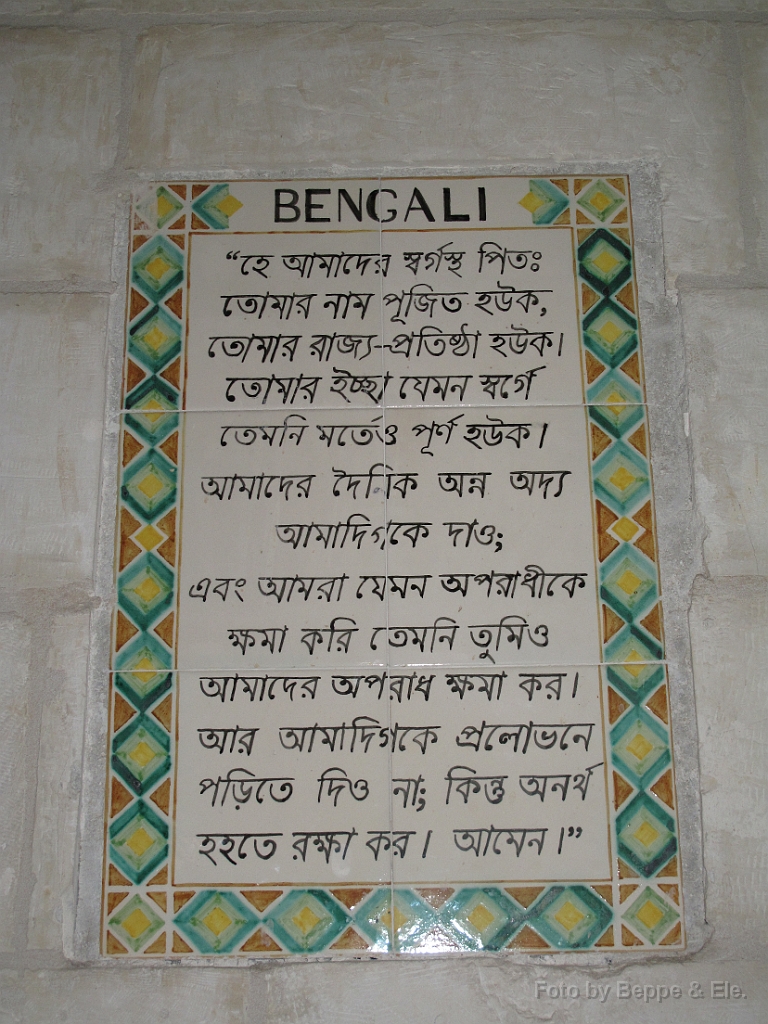 BENGALI
“হে আমাদের স্বর্গস্থ পিতঃ
তোমার নাম পূজিত হউক,
তোমার রাজ্য-প্রতিষ্ঠা হউক।
তোমার ইচ্ছা যেমন স্বর্গে
তেমনি মর্তেও পূর্ণ হউক।
আমাদের দৈনিক অন্ন অদ্য
আমাদিগকে দাও;
এবং আমরা যেমন অপরাধীকে
ক্ষমা করি তেমনি তুমিও
আমাদের অপরাধ ক্ষমা কর।
আর আমাদিগকে প্রলোভনে
পড়িতে দিও না; কিন্তু অনর্থ
হহতে রক্ষা কর। আমেন।”
Foto by Beppe & Ele.